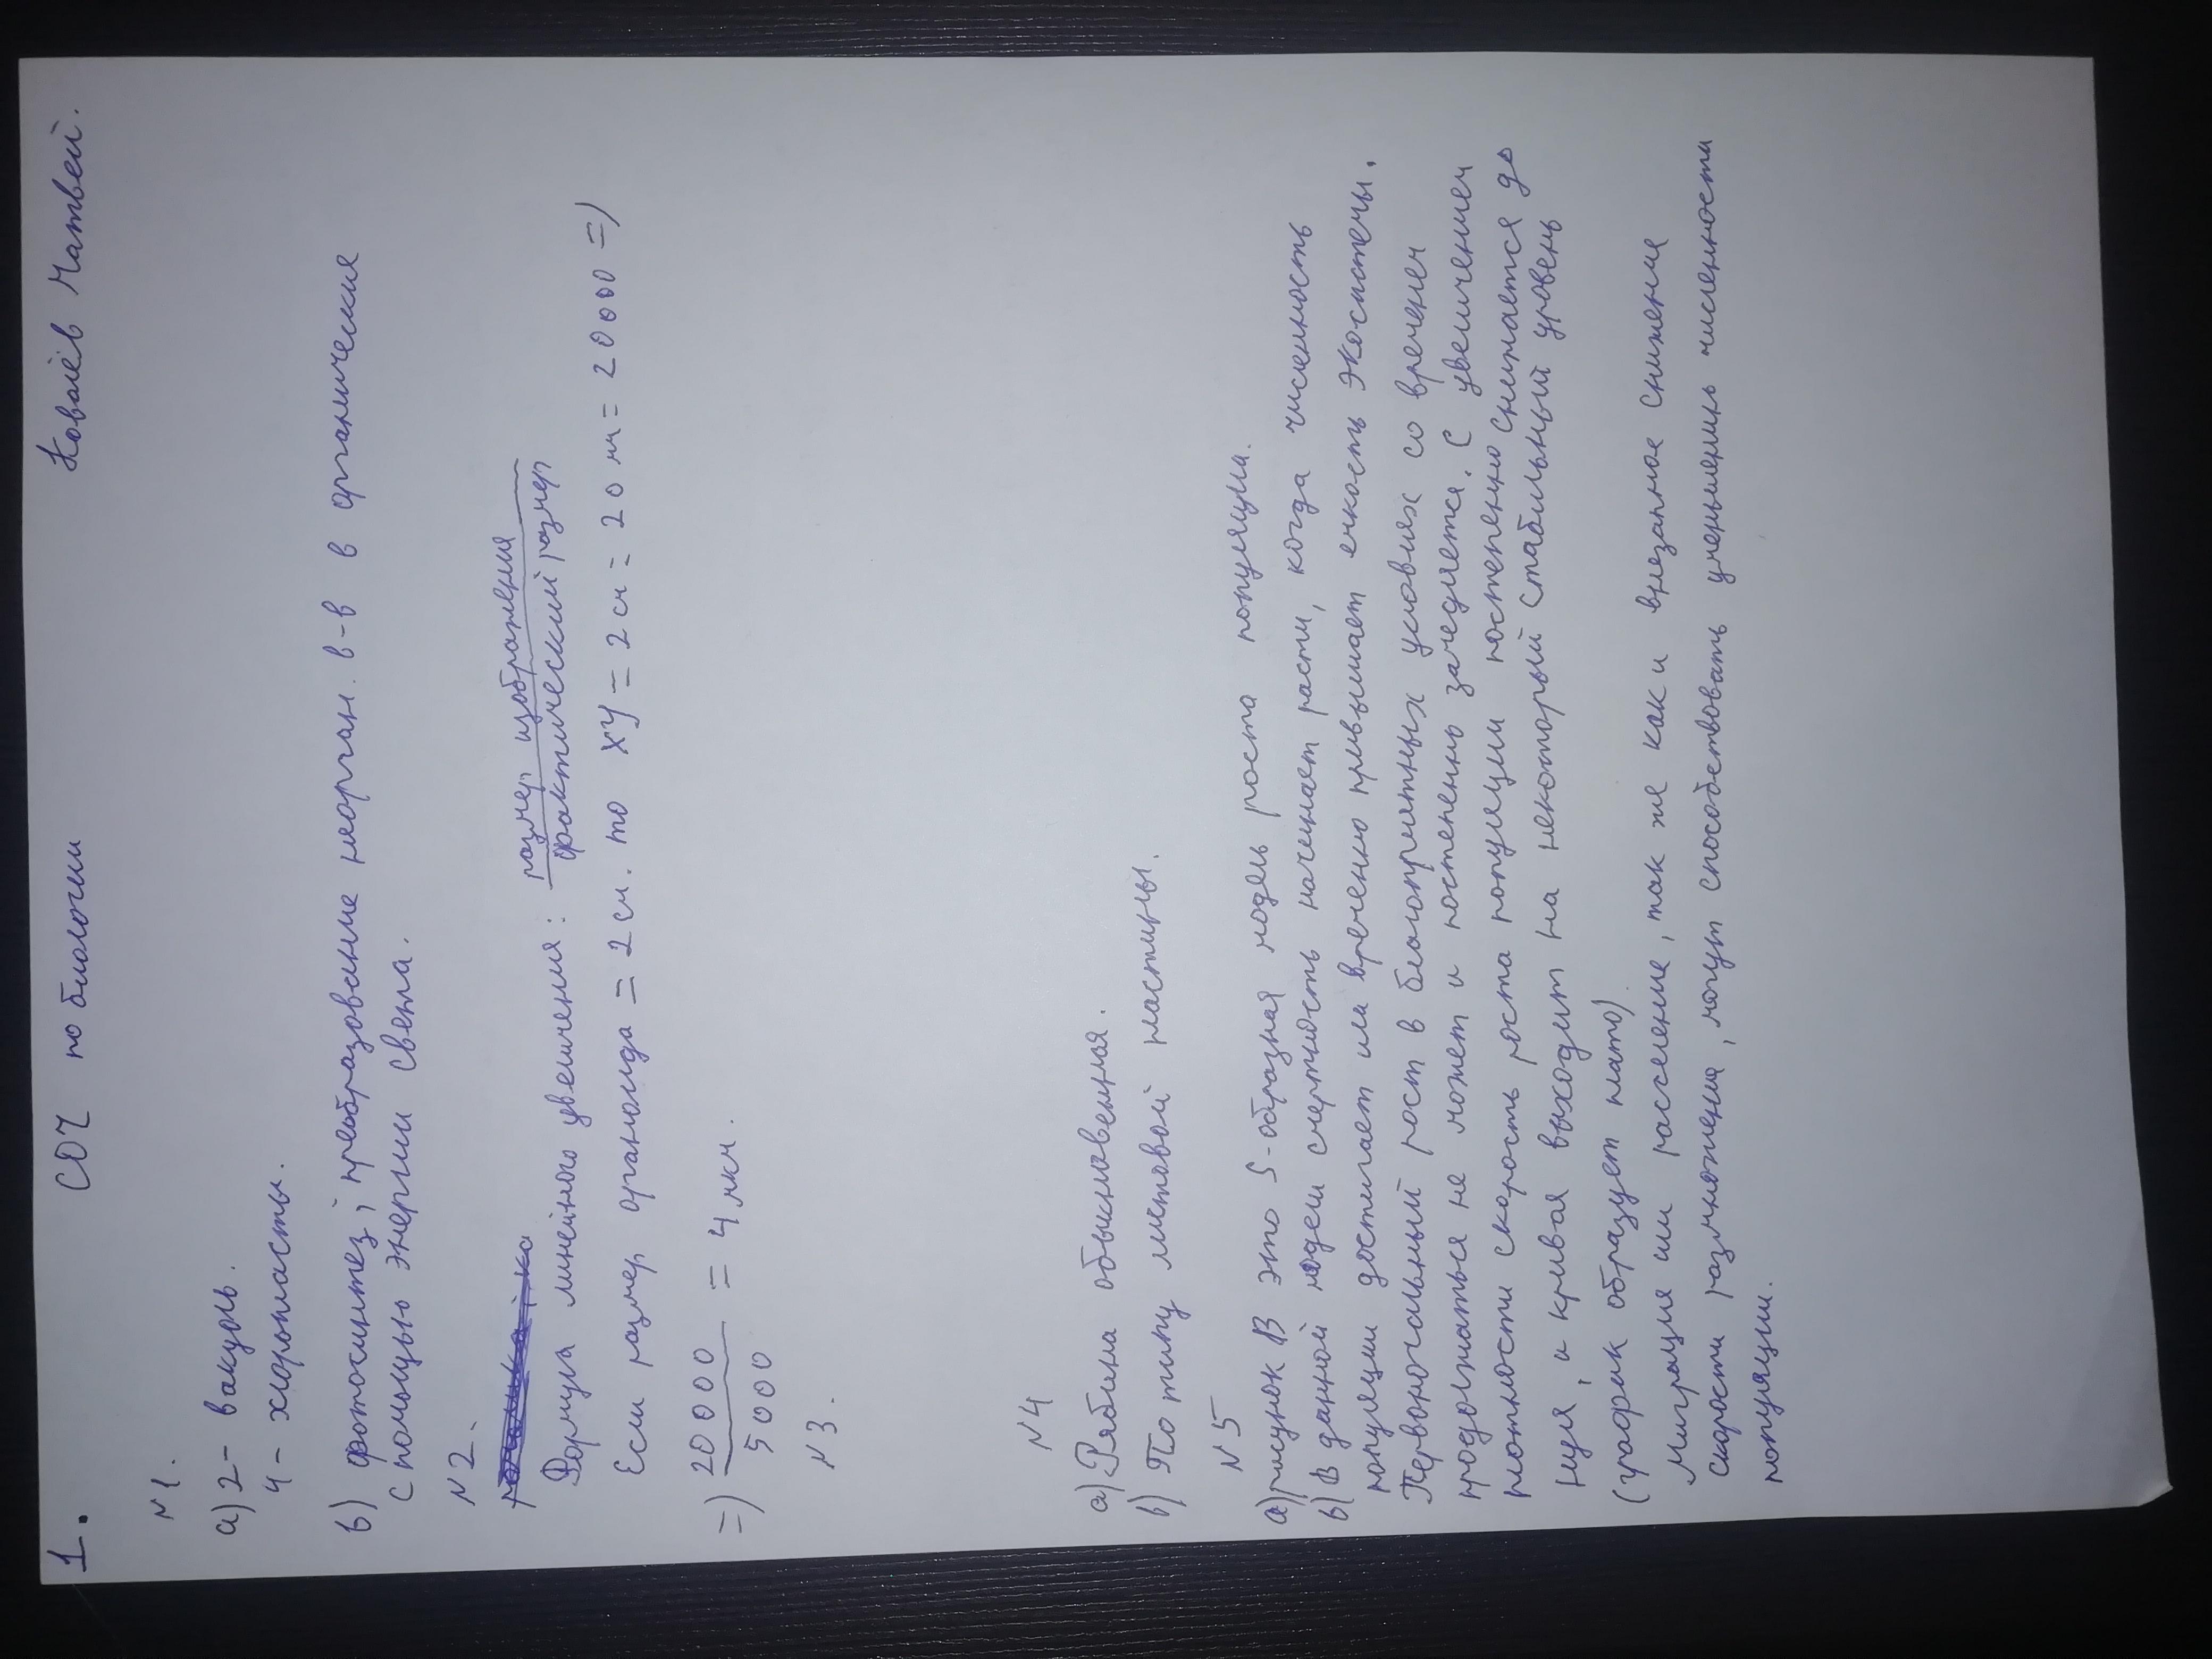 1. СОЧ по биологии Ковалёв Матвей.
N1.
а) 2 - вакуоль.
4 - хлоропласты.
в) фотосинтез; преобразование неорган. в-в в органические
с помощью энергии света.
N2.
Формула линейного увеличения: размер изображения
фактический размер
Если размер органоида = 2 см. то ху = 2 см = 20 мм = 20000 =)
=) 20000 = 4 мкм.
5000
N3.
N4
а) Рябина обыкновенная.
в) По типу листовой пластины.
N5
а) рисунок В это S-образная модель роста популяции.
в) В данной модели смертность начинает расти, когда численность
популяции достигает или временно превышает емкость экосистемы.
Первоначальный рост в благоприятных условиях со временем
продолжаться не может и постепенно замедляется. С увеличением
плотности скорость роста популяции постепенно снижается до
нуля, и кривая выходит на некоторый стабильный уровень
(график образует плато).
Миграция или расселение, так же как и внезапное снижение
скорости размножения, могут способствовать уменьшению численности
популяции.